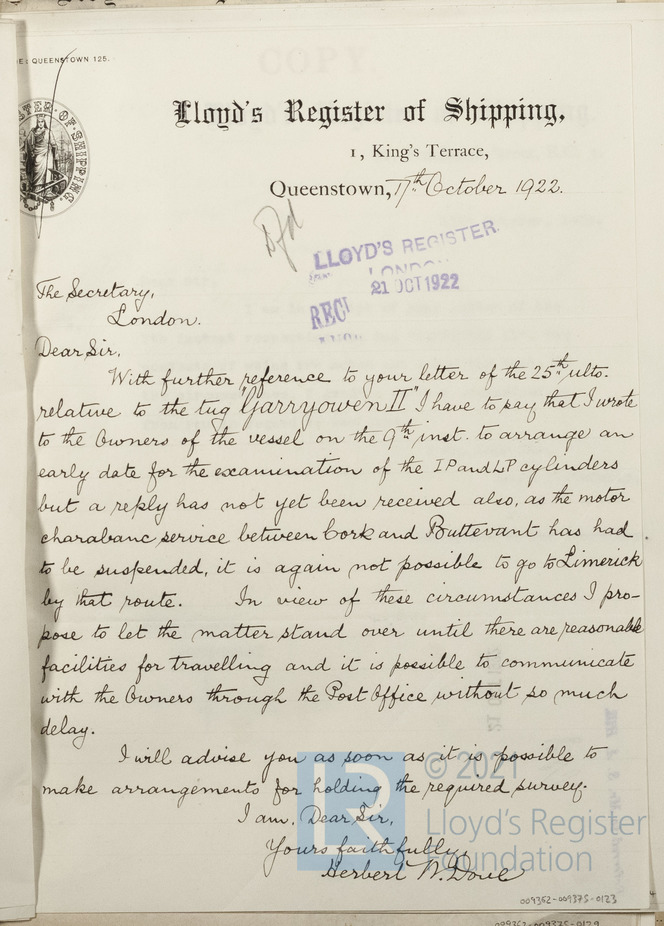 QUEENSTOWN 125.
COPY.
Lloyd's Register of Shipping,
1, King's Terrace,
Queenstown, 17th October 1922.
LLOYD'S REGISTER
LONDON
21 OCT 1922
The Secretary,
London.
Dear Sir,
With further reference to your letter of the 25th ulto.
relative to the tug "Garryowen II" I have to say that I wrote
to the Owners of the vessel on the 9th inst. to arrange an
early date for the examination of the IP and LP cylinders
but a reply has not yet been received also, as the motor
charabanc service between Cork and Buttevant has had
to be suspended, it is again not possible to go to Limerick
by that route. In view of these circumstances I pro-
pose to let the matter stand over until there are reasonable
facilities for travelling and it is possible to communicate
with the Owners through the Post Office without so much
delay.
I will advise you as soon as it is possible to
make arrangements for holding the required survey.
I am, Dear Sir,
Yours faithfully,
Herbert W. Dove
LR
© 2021
Lloyd's Register
Foundation
009362-009375-0123